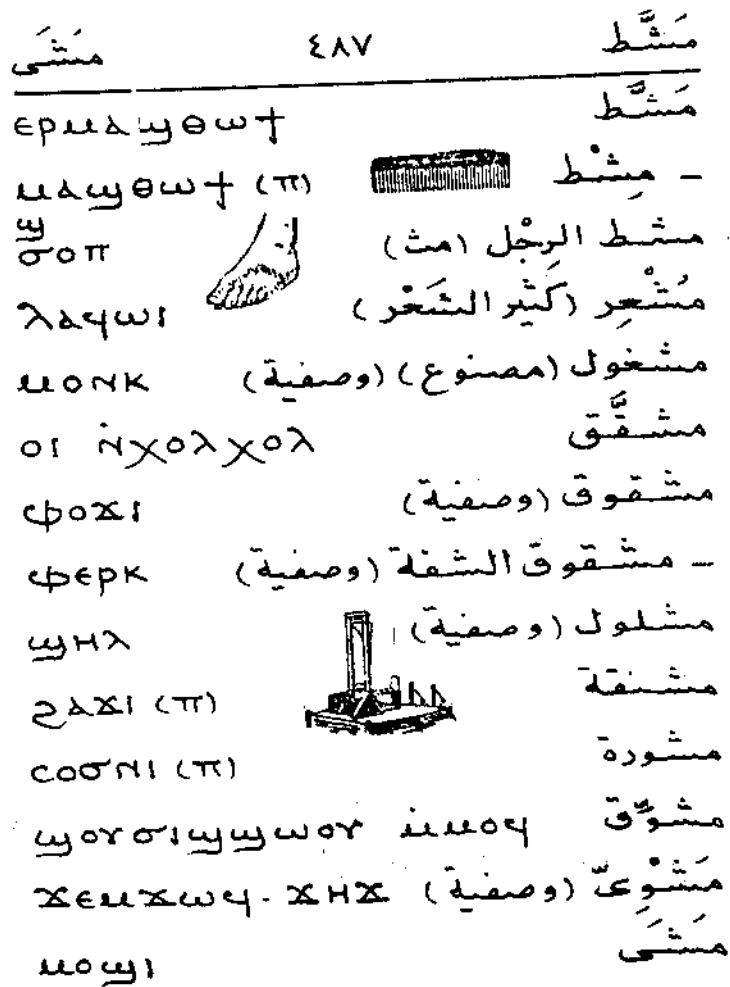 مَشَّط ٤٨٧ مَشَى
مَشَّط ⲉⲣⲙⲁϣⲑⲱϯ
- مِشْط ⲙⲁϣⲑⲱϯ (ⲡ)
مشط الرِجْل (مث) ϣϭⲟⲡ
مُشْعِر (كَثير الشَعْر) ⲗⲁϥⲱⲓ
مشغول (مصنوع) (وصفية) ⲙⲟⲛⲕ
مشقَّق ⲟⲓ ⲛ̇ⲭⲟⲗⲭⲟⲗ
مشقوق (وصفية) ⲫⲟϫⲓ
- مشقوق الشفة (وصفية) ⲫⲉⲣⲕ
مشلول (وصفية) ϣⲏⲗ
مشنقة ϩⲁϫⲓ (ⲡ)
مشورة ⲥⲟϭⲛⲓ (ⲡ)
مشوّق ϣⲟⲩϭⲓϣϣⲱⲟⲩ ⲙ̇ⲙⲟϥ
مَشْوِىّ (وصفية) ϫⲉⲙϫⲱϥ - ϫⲏϫ
مَشَى ⲙⲟϣⲓ